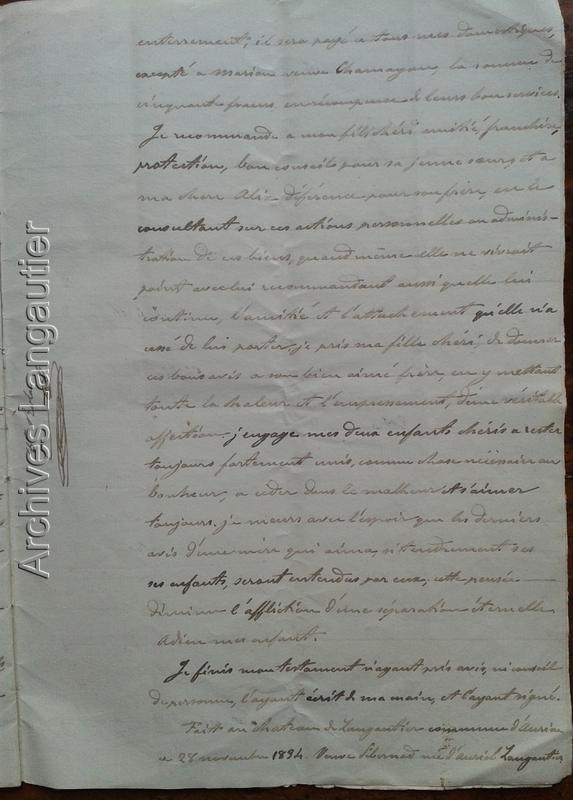 enterrement, il sera payé a tous mes domestiques,
excepté a Marion veuve Chamayou, la somme de
cinquant francs, en récompense de leurs bon services.
Je recommande a mon fils chéri amitié, franchise,
protection, bon conseils pour sa jeune sœur, et a
ma chere Alix déférence pour son frère, en le
consultant sur ces actions personnelles ou adminis-
tration de ces biens, quand même elle ne vivrait
point avec lui recommandant aussi quelle lui
continue, l'amitié et l'attachement qu'elle n'a
cessé de lui porter, je pris ma fille chéri, de donner
ces bons avis a son bien aimé frère, en y mettant
toute la chaleur et l'empressement, d'une véritable
affection. j'engage mes deux enfants chéris a rester
toujours fortement unis, comme chose nécessaire au
bonheur, a céder dans le malheur et s'aimer
toujours. je meurs avec l'espoir que les derniers
avis d'une mère qui aima, si tendrement ses
ses enfants, seront entendus par eux, cette pensée
diminue l'affliction d'une séparation éternelle
Adieu mes enfant.
Je finis mon testament n'ayant pris avis, ni conseil
de personne, l'ayant écrit de ma main, et l'ayant signé.
Fait au chateau de Langautier commune d'Auriac
ce 28 novembre 1834. Veuve née d'auriol Langautier
Archives Langautier